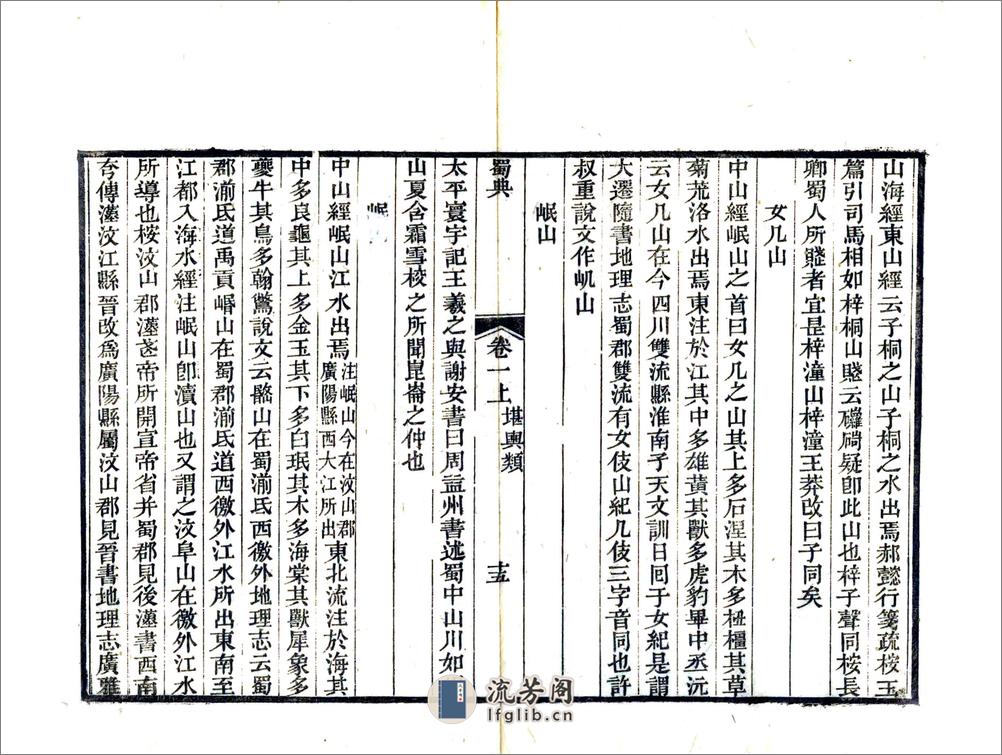 山海經東山經云子桐之山子桐之水出焉郝懿行箋疏桉玉
篇引司馬相如梓桐山賤云礳碋疑卽此山也梓子聲同桉長
卿蜀人所賤者宜是梓潼山梓潼王莽改曰子同矣
女几山
中山經岷山之首曰女几之山其上多石涅其木多杻橿其草
菊荒洛水出焉東注於江其中多雄黃其獸多虎豹畢中丞沅
云女几山在今四川雙流縣淮南子天文訓日囘于女紀是謂
大遷隨書地理志蜀郡雙流有女伎山紀几伎三字音同也許
叔重說文作屼山
岷山
蜀典
卷一上
堪輿類
十五
太平寰宇記王羲之與謝安書曰周益州書述蜀中山川如
山夏含霜雪校之所聞崑崙之仲也
岷
中山經岷山江水出焉注岷山今在汶山郡廣陽縣西大江所出東北流注於海其
中多良龜其上多金玉其下多白珉其木多海棠其獸犀象多
夔牛其鳥多翰鷩說文云㟭山在蜀湔氐西徼外地理志云蜀
郡湔氐道禹貢㟭山在蜀郡湔氐道西徼外江水所出東南至
江都入海水經注岷山卽瀆山也又謂之汶阜山在徼外江水
所導也桉汶山郡漢武帝所開宣帝省并蜀郡見後漢書西南
夸傳漢汶江縣晉改爲廣陽縣屬汶山郡見晉書地理志廣雅
流芳阁
lfglib.cn